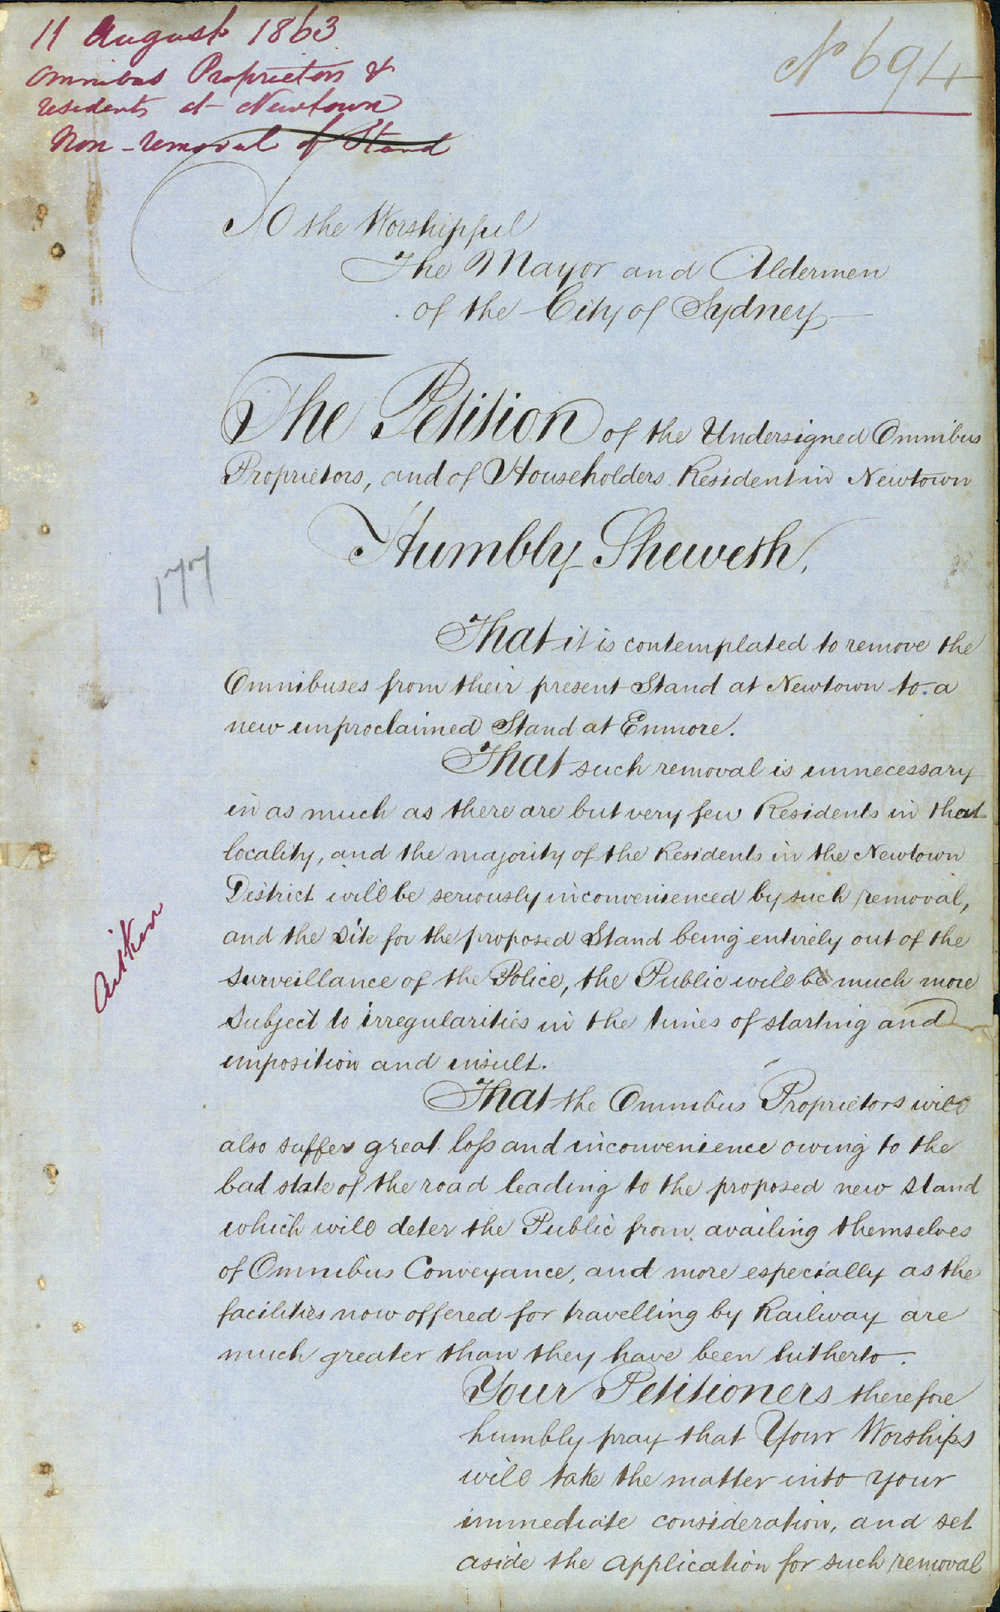 11 August 1863
Omnibus Proprietors &
residents at Newtown
Non-removal of Stand
No 694
To the Worshipful
The Mayor and Aldermen
of the City of Sydney
The Petition of the Undersigned Omnibus
Proprietors, and of Householders Resident in Newtown
Humbly Sheweth,
177
That it is contemplated to remove the
Omnibuses from their present Stand at Newtown to a
new unproclaimed Stand at Enmore.
That such removal is unnecessary
in as much as there are but very few Residents in that
locality, and the majority of the Residents in the Newtown
District will be seriously inconvenienced by such removal,
and the site for the proposed Stand being entirely out of the
surveillance of the Police, the Public will be much more
subject to irregularities in the times of starting and
imposition and insult.
Aitken
That the Omnibus Proprietors will
also suffer great loss and inconvenience owing to the
bad state of the road leading to the proposed new stand
which will deter the Public from availing themselves
of Omnibus Conveyance, and more especially as the
facilities now offered for travelling by Railway are
much greater than they have been hitherto.
Your Petitioners therefore
humbly pray that Your Worships
will take the matter into your
immediate consideration, and set
aside the application for such removal